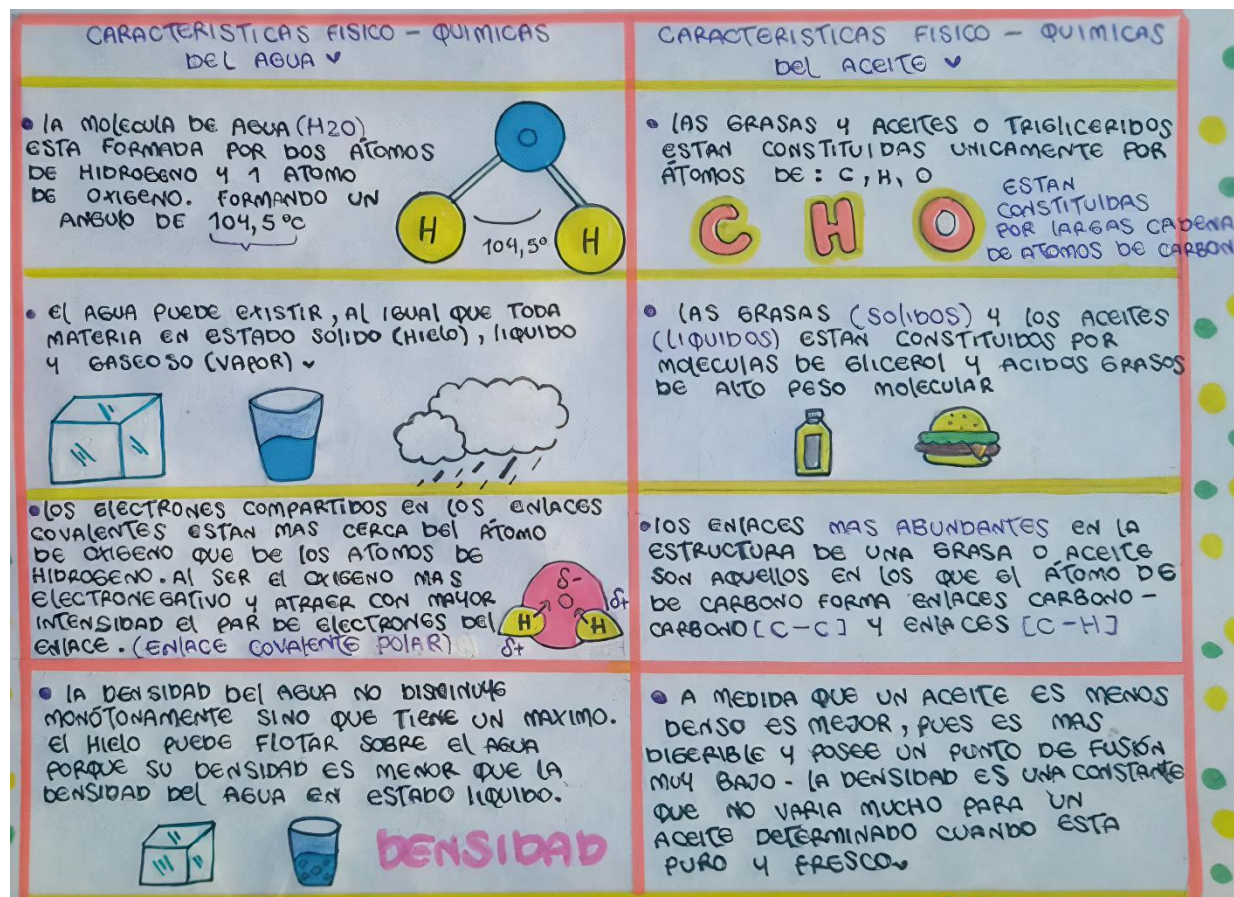 CARACTERISTICAS FISICO - QUIMICAS
DEL AGUA
• LA MOLECULA DE AGUA (H2O)
ESTA FORMADA POR DOS ÁTOMOS
DE HIDROGENO Y 1 ATOMO
DE OXIGENO. FORMANDO UN
ANGULO DE 104,5 °C
O
H
H
104,5°
• EL AGUA PUEDE EXISTIR, AL IGUAL QUE TODA
MATERIA EN ESTADO SOLIDO (HIELO), LIQUIDO
Y GASEOSO (VAPOR)
• LOS ELECTRONES COMPARTIDOS EN LOS ENLACES
COVALENTES ESTAN MAS CERCA DEL ÁTOMO
DE OXIGENO QUE DE LOS ATOMOS DE
HIDROGENO. AL SER EL OXIGENO MAS
ELECTRONEGATIVO Y ATRAER CON MAYOR
INTENSIDAD EL PAR DE ELECTRONES DEL
ENLACE. (ENLACE COVALENTE POLAR)
δ-
O
δ+
H
H
δ+
• LA DENSIDAD DEL AGUA NO DISMINUYE
MONÓTONAMENTE SINO QUE TIENE UN MAXIMO.
EL HIELO PUEDE FLOTAR SOBRE EL AGUA
PORQUE SU DENSIDAD ES MENOR QUE LA
DENSIDAD DEL AGUA EN ESTADO LIQUIDO.
DENSIDAD
CARACTERISTICAS FISICO - QUIMICAS
DEL ACEITE
• LAS GRASAS Y ACEITES O TRIGLICERIDOS
ESTAN CONSTITUIDAS UNICAMENTE POR
ÁTOMOS DE: C, H, O
C H O
ESTAN
CONSTITUIDAS
POR LARGAS CADENA
DE ATOMOS DE CARBON
• LAS GRASAS (SOLIDOS) Y LOS ACEITES
(LIQUIDOS) ESTAN CONSTITUIDOS POR
MOLECULAS DE GLICEROL Y ACIDOS GRASOS
DE ALTO PESO MOLECULAR
• LOS ENLACES MAS ABUNDANTES EN LA
ESTRUCTURA DE UNA GRASA O ACEITE
SON AQUELLOS EN LOS QUE EL ÁTOMO DE
DE CARBONO FORMA ENLACES CARBONO -
CARBONO [C-C] Y ENLACES [C-H]
• A MEDIDA QUE UN ACEITE ES MENOS
DENSO ES MEJOR, PUES ES MAS
DIGERIBLE Y POSEE UN PUNTO DE FUSIÓN
MUY BAJO - LA DENSIDAD ES UNA CONSTANTE
QUE NO VARIA MUCHO PARA UN
ACEITE DETERMINADO CUANDO ESTA
PURO Y FRESCO